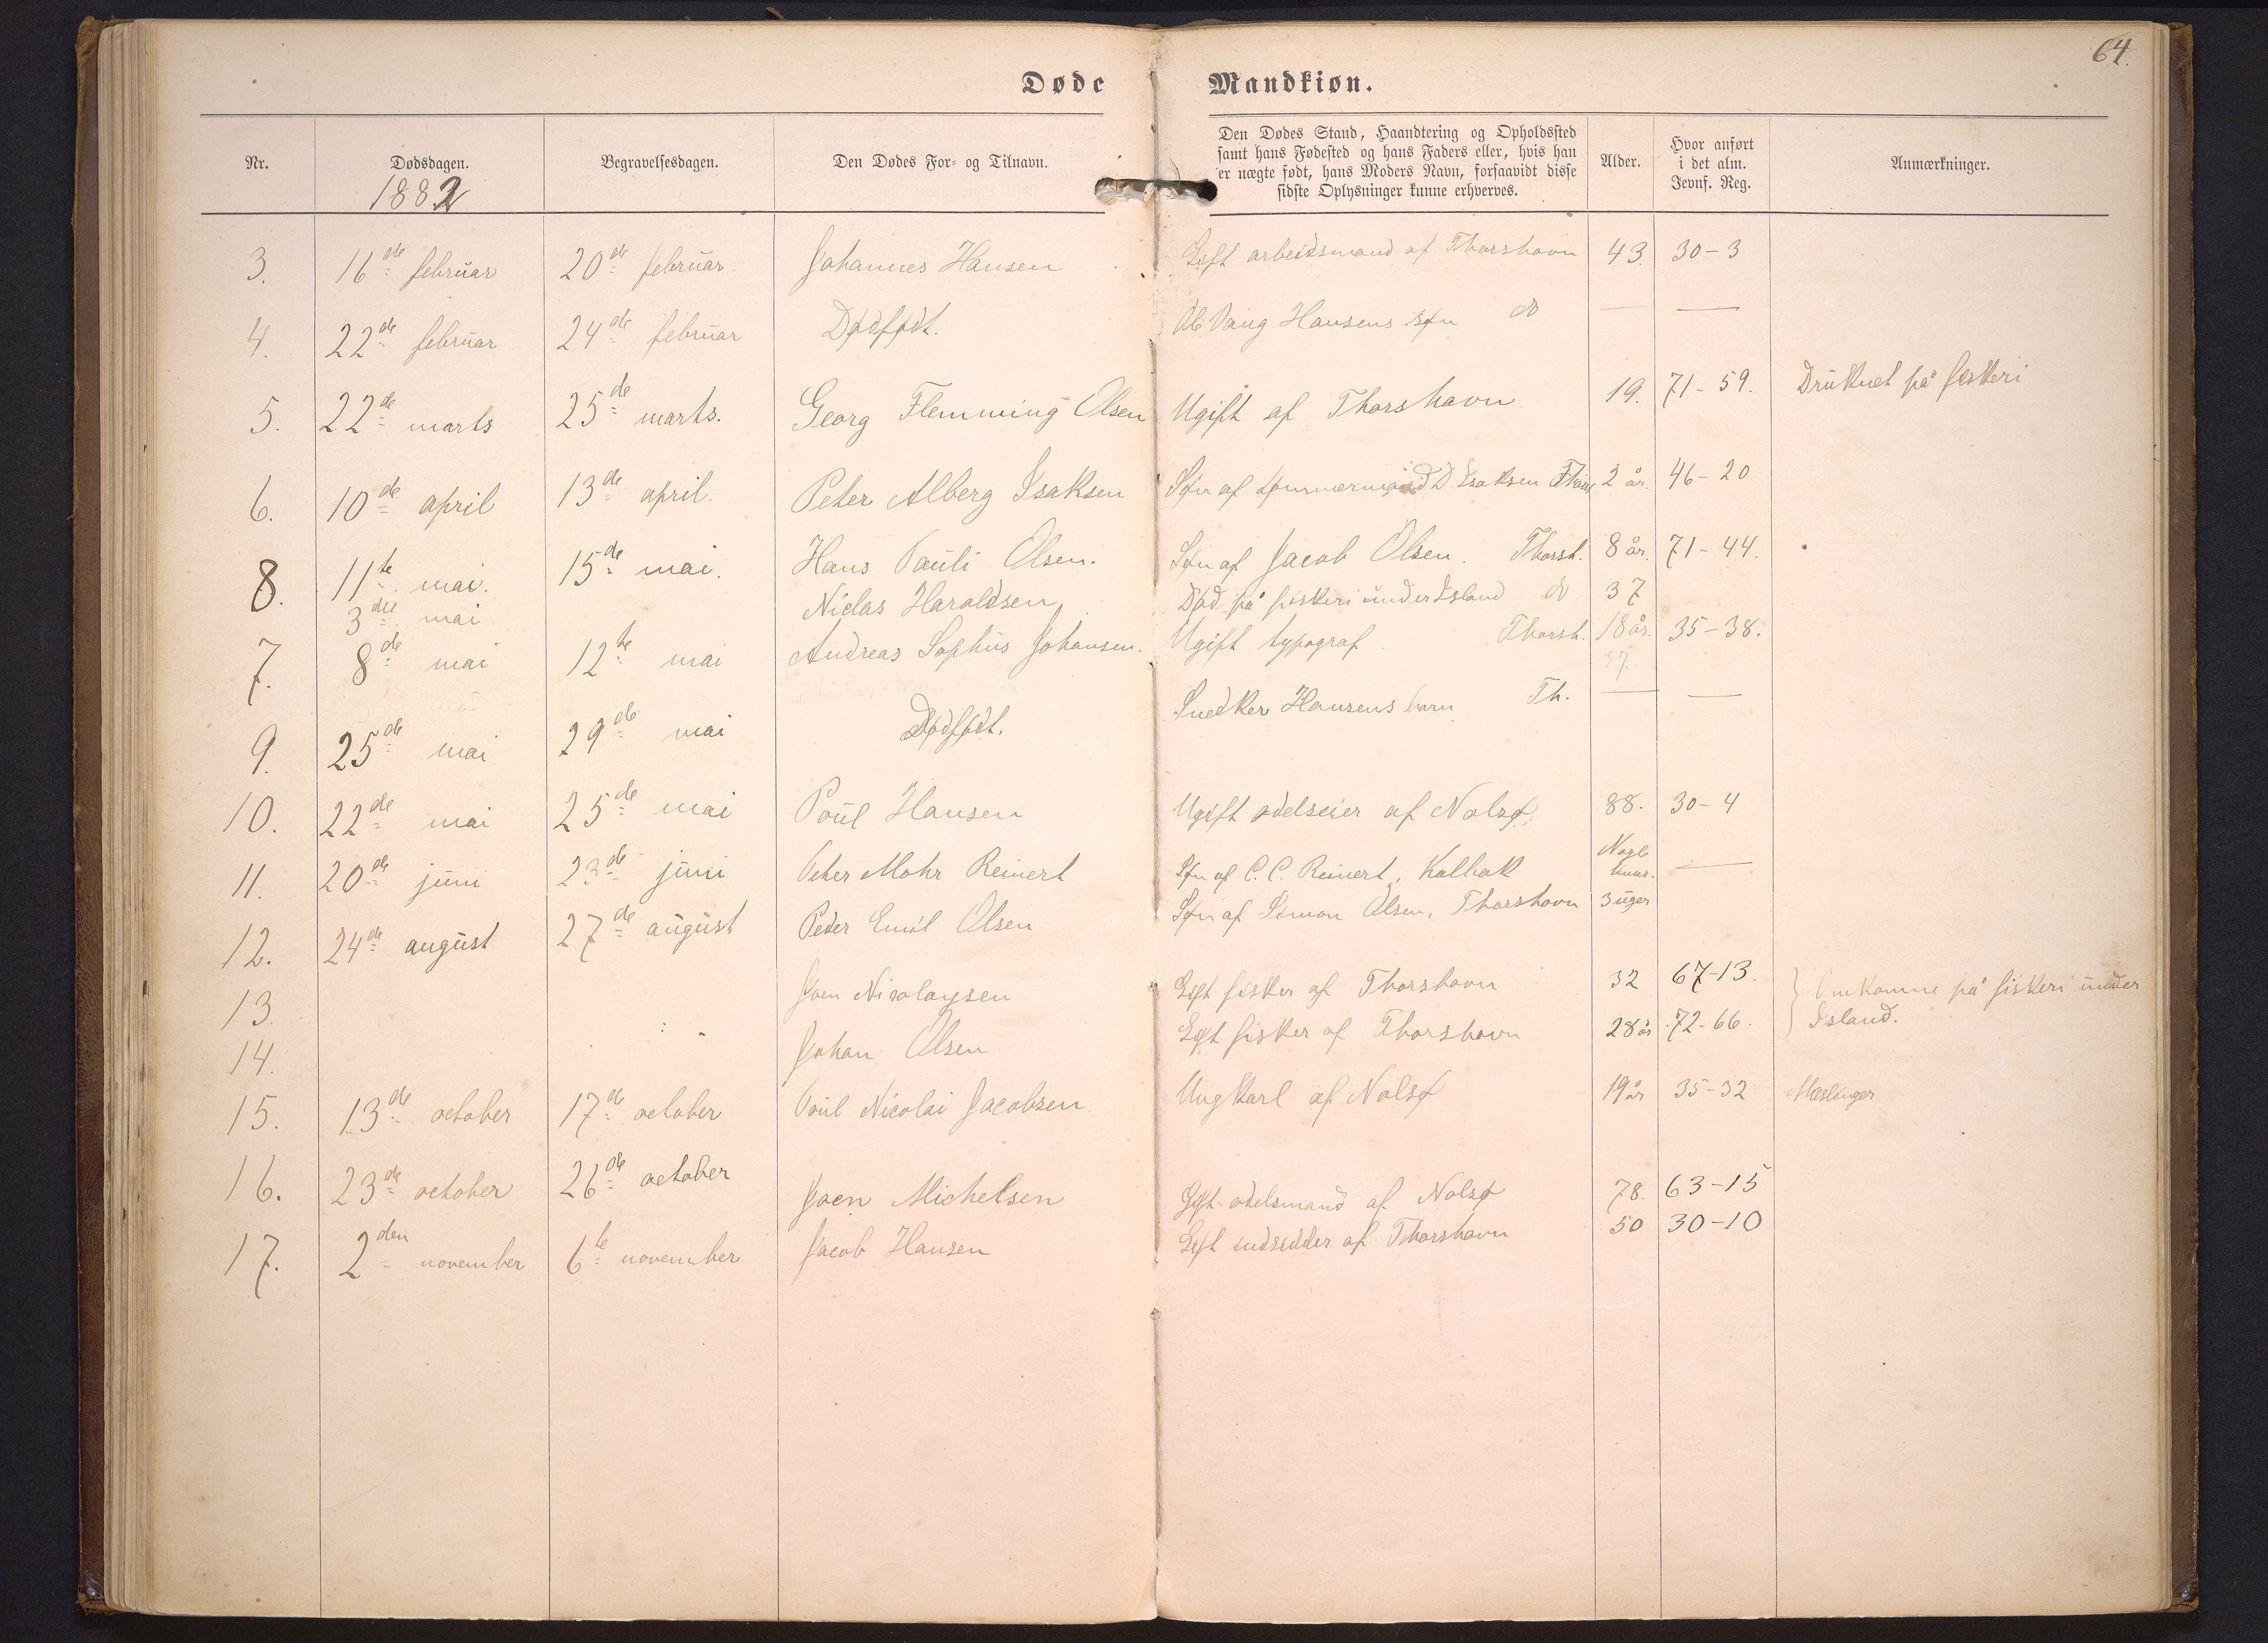 64.
Døde Mandkiøn.
Nr. Dødsdagen. Begravelsesdagen. Den Dødes For- og Tilnavn. Den Dødes Stand, Haandtering og Opholdssted samt hans Fødested og hans Faders eller, hvis han er uægte født, hans Moders Navn, forsaavidt disse sidste Oplysninger kunne erhverves. Alder. Hvor anført i det alm. Jevnf. Reg. Anmærkninger.
1882
3. 16de februar 20de februar Johannes Hansen Gift arbeidsmand af Thorshavn 43. 30-3
4. 22de februar 24de februar Dødfødt. Vang Hansens søn do — —
5. 22de marts 25de marts. Georg Flemming Olsen Ugift af Thorshavn 19. 71-59. Druknet på fiskeri
6. 10de april 13de april. Peter Alberg Isaksen Søn af tømmermand D. Isaksen 2 år. 46-20
8. 11te mai. 15de mai. Hans Pauli Olsen. Søn af Jacob Olsen. Thorsh. 8 år. 71-44.
3die mai Niclas Haraldsen Død på fiskeri under Island do 37
7. 8de mai 12te mai Andreas Sophus Johansen. Ugift typograf Thorsh. 18 år. 35-38.
37
9. 25de mai 29de mai Dødfødt. Snedker Hansens barn Th. — —
10. 22de mai 25de mai Poul Hansen Ugift odelseier af Nolsø 88. 30-4
11. 20de juni 23de juni Peter Mohr Reinert Søn af C. C. Reinert, Kalbak —
12. 24de august 27de august Peder Emil Olsen Søn af Simon Olsen, Thorshavn 3 uger
13. Joen Nicolaysen Gift fisker af Thorshavn 32 67-13. } Omkomne på fiskeri under
14. Johan Olsen Gift fisker af Thorshavn 28 år 72-66. Island.
15. 13de october 17de october Poul Nicolai Jacobsen Ungkarl af Nolsø 19 år 35-32 Mæslinger
16. 23de october 26de october Joen Michelsen Gift odelsmand af Nolsø 78. 63-15
17. 2den november 6te november Jacob Hansen Gift indsidder af Thorshavn 50 30-10